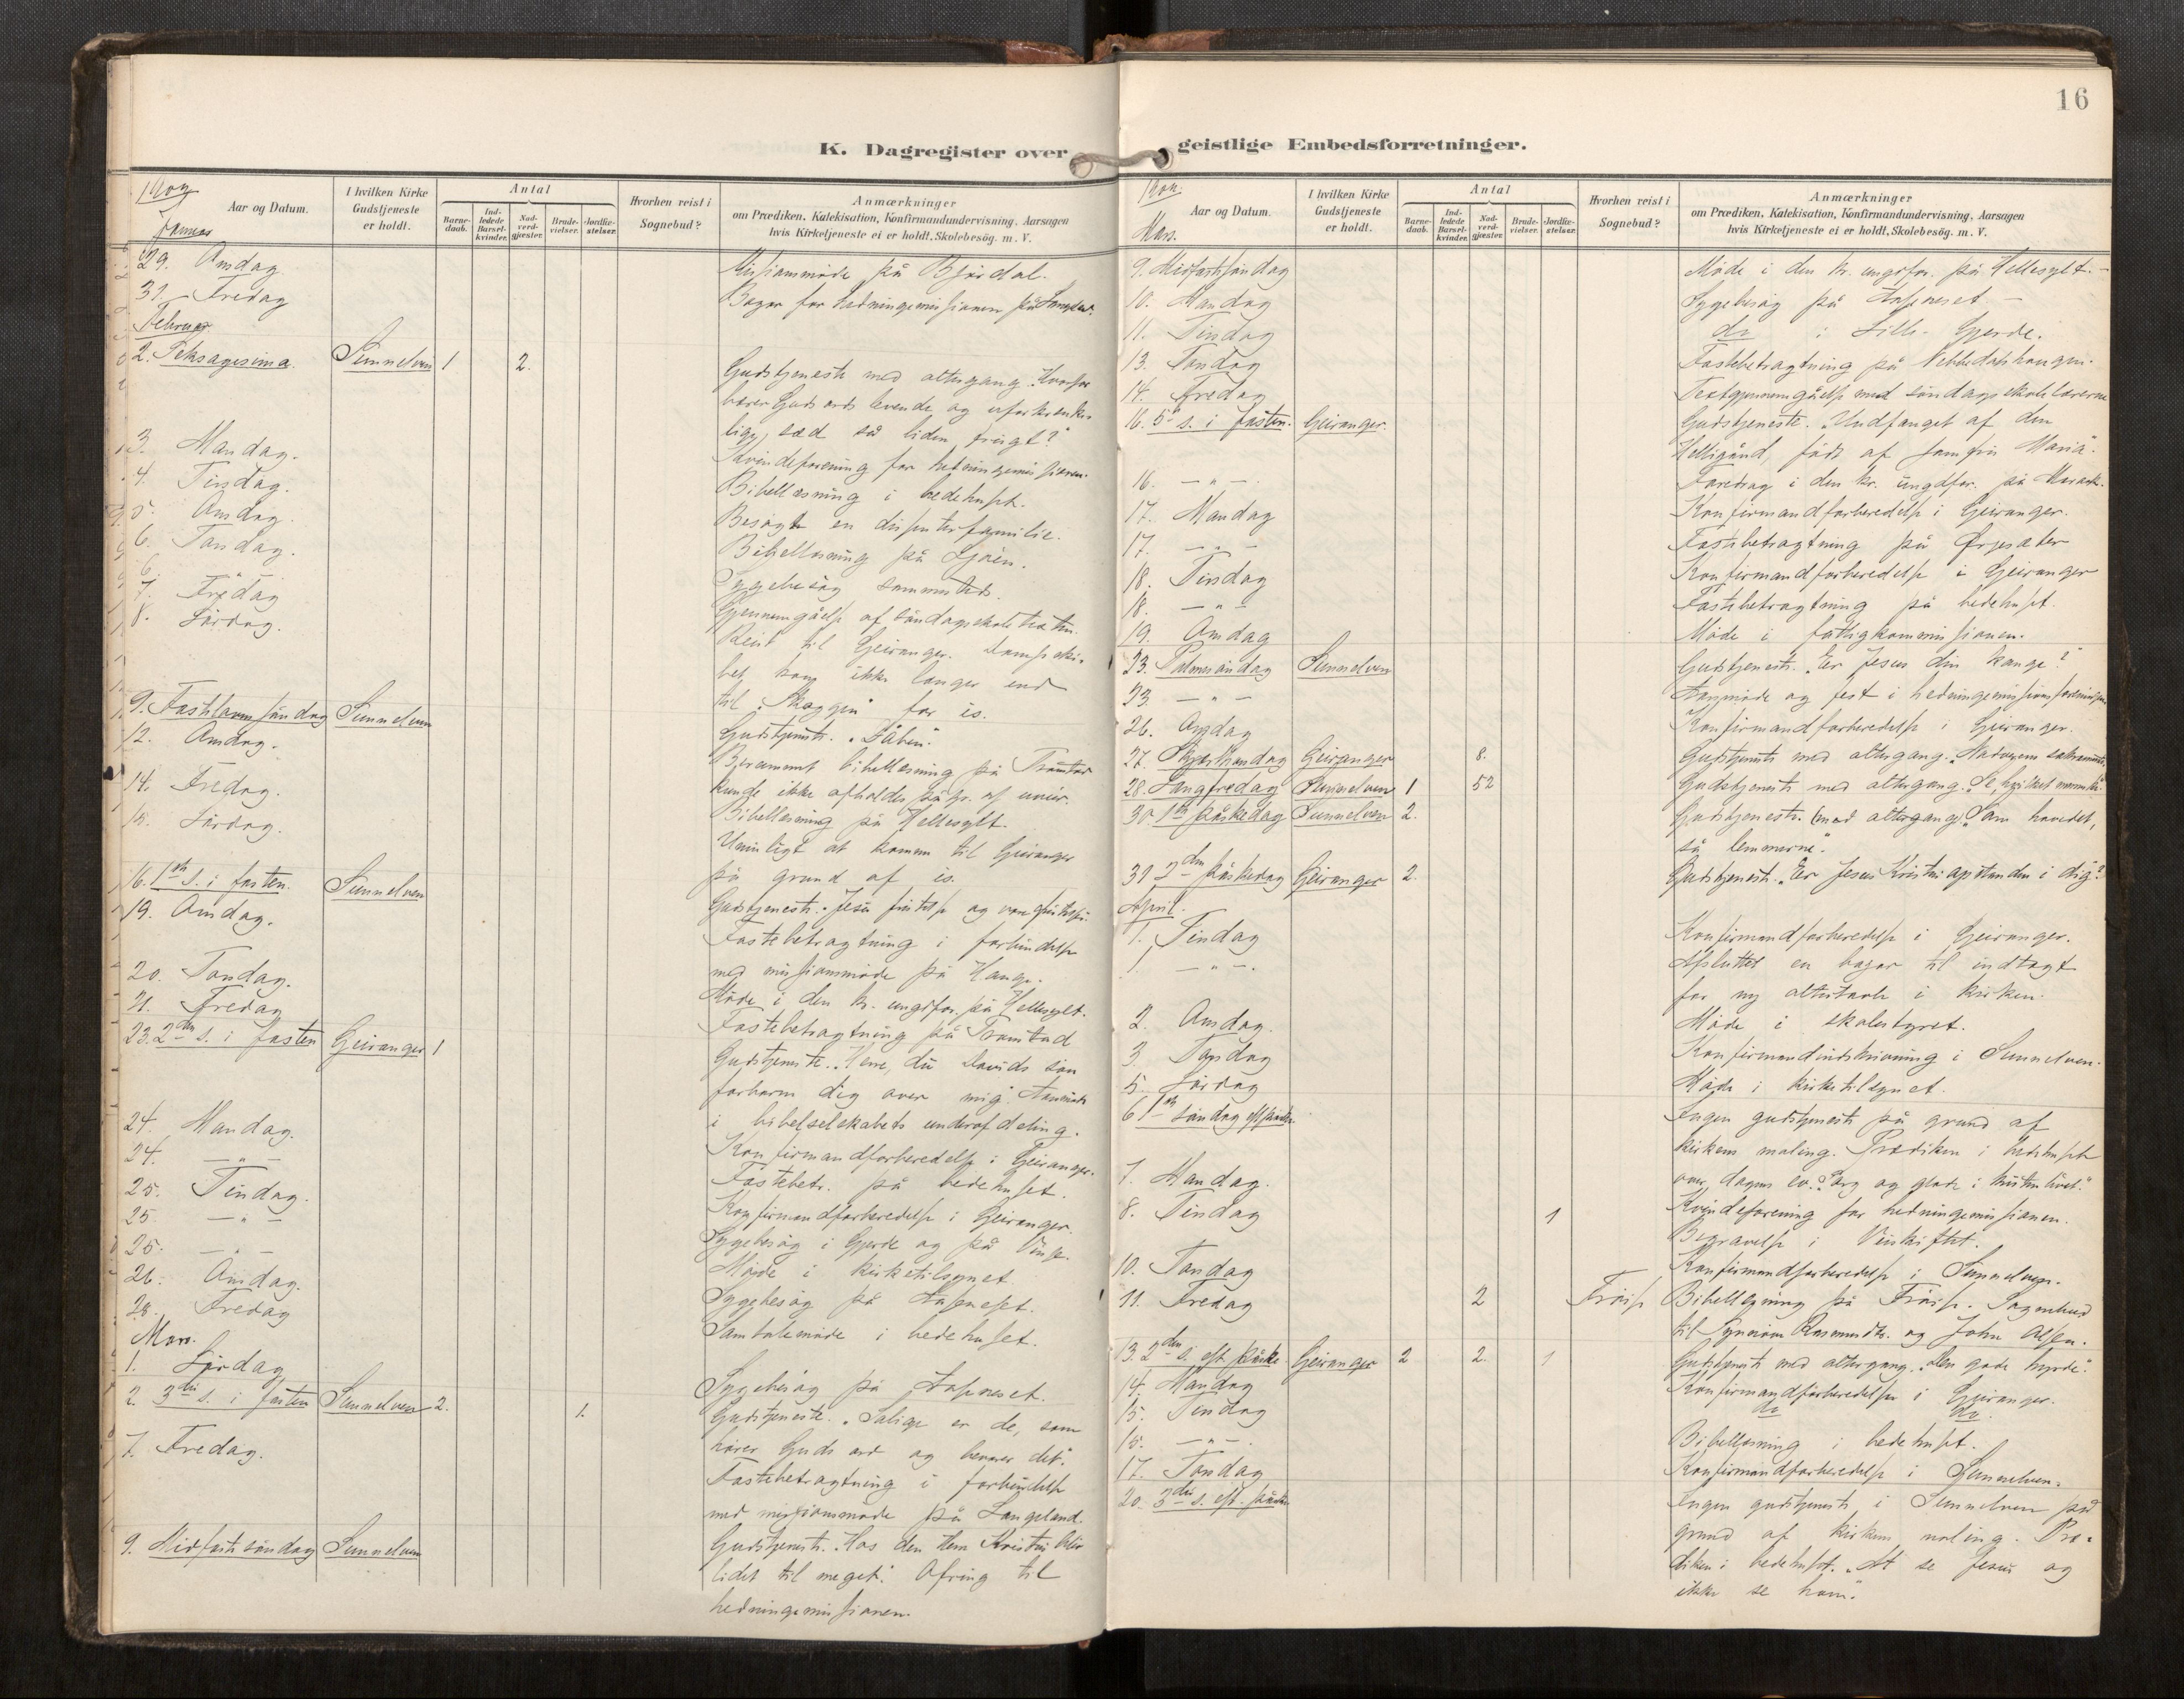 16
K. Dagregister over
1902
Januar
Aar og Datum.
I hvilken Kirke Gudstjeneste er holdt.
Antal
Barnedaab.
Indledede Barselkvinder.
Nadverdgjæster.
Brudevielser.
Jordfæstelser.
Hvorhen reist i Sognebud?
Anmærkninger
om Prædiken, Katekisation, Konfirmandundervisning, Aarsagen
hvis Kirketjeneste ei er holdt, Skolebesög. m. V.
29. Onsdag Missionsmøde på Bjørdal.
31 Fredag Bazar for hedningemissionen på
Februar
2. Seksagesima Sunnelven 1 2. Gudstjeneste med altergang. Hvorfor
bærer Guds ords levende og uforkrænke-
lige sæd så liden frugt?"
3. Mandag. Kvindeforening for hedningemissionen.
4. Tirsdag. Bibellæsning i bedehuset.
5. Onsdag. Besøgte en dissenterfamilie.
6. Torsdag. Bibellæsning på Ljøen.
6. Sygebesøg sammesteds.
7. Fredag Gjennemgåelse af søndagsskoletexten.
8. Lördag. Reist til Geiranger. Dampski-
bet kom ikke længer end
til "Skaggen" for is.
9. Fastelavnssøndag Sunnelven Gudstjeneste. "Dåben."
12. Onsdag. Berammet bibellæsning på Tronstad
kunde ikke afholdes på gr. af uveir.
14. Fredag. Bibellæsning på Hellesylt.
15. Lördag. Umuligt at komme til Geiranger
på grund af is.
16. 1ste s. i fasten. Sunnelven Gudstjeneste. Jesu fristelse og vore fristelser.
19. Onsdag. Fastebetragtning i forbindelse
med missionsmøde på Hauge.
20. Torsdag. Møde i den kr. ungdfor. på Hellesylt.
21. Fredag Fastebetragtning på Tronstad
23. 2den s. i fasten Geiranger 1 Gudstjeneste. "Herre, du Davids søn
forbarm dig over mig". Årsmøde
i bibelselskabets underafdeling.
24. Mandag. Konfirmandforberedelse i Geiranger.
24. — " — Fastebetr. på bedehuset.
25. Tirsdag. Konfirmandforberedelse i Geiranger.
25. — " — Sygebesøg i Gjerde og på
25. — " — Møde i kirketilsynet.
26. Onsdag. Sygebesøg på Aaseneset.
28. Fredag Samtalemøde i bedehuset.
Mars.
1. Lördag Sygebesøg på Aaseneset.
2. 3die s. i fasten Sunnelven 2. 1. Gudstjeneste. "Salige er de, som
hører Guds ord og bevarer det".
7. Fredag. Fastebetragtning i forbindelse
med missionsmøde på Langeland.
9. Midfastesöndag Sunnelven Gudstjeneste. "Hos den Herre Kristus blir
lidet til meget". Ofring til
hedningemissionen.
geistlige Embedsforretninger.
1902.
Mars.
Aar og Datum.
I hvilken Kirke Gudstjeneste er holdt.
Antal
Barnedaab.
Indledede Barselkvinder.
Nadverdgjæster.
Brudevielser.
Jordfæstelser.
Hvorhen reist i Sognebud?
Anmærkninger
om Prædiken, Katekisation, Konfirmandundervisning, Aarsagen
hvis Kirketjeneste ei er holdt, Skolebesög. m. V.
9. Midfastesöndag Møde i den kr. ungdfor. på Hellesylt. —
10. Mandag Sygebesøg på Aaseneset —
11. Tirsdag do i Lille-Gjerde.
13. Torsdag Fastebetragtning på Nebbedalshaugen.
14. Fredag Textgjennemgåelse med søndagsskolelærerne
16. 5te s. i fasten. Geiranger. Gudstjeneste. "Undfanget af den
Helligånd, født af jomfru Maria".
16. — " — Foredrag i den kr. ungdfor. på Maraak.
17. Mandag Konfirmandforberedelse i Geiranger.
17. — " — Fastebetragtning på Ørjesæter
18. Tirsdag Konfirmandforberedelse i Geiranger
18. — " — Fastebetragtning på bedehuset.
19. Onsdag Møde i fattigkommissionen.
23. Palmesöndag Sunnelven Gudstjeneste. "Er Jesus din konge?"
23. — " — Årsmøde og fest i hedningemissionsforeningen
26. Onsdag Konfirmandforberedelse i Geiranger.
27. Skjærtorsdag Geiranger 8. Gudstjeneste med altergang. "Nadverens sakramente."
28. Langfredag Sunnelven 1 52 Gudstjeneste med altergang. "Se, hvilket menneske."
30. 1ste påskedag Sunnelven 2. Gudstjeneste. (med altergang). "Som hovedet,
så lemmerne".
31 2den påskedag Geiranger 2. Gudstjeneste. "Er Jesus Kristus opstanden i dig?"
April.
1. Tirsdag Konfirmandforberedelse i Geiranger.
1. — " — Afsluttet en bazar til indtægt
for ny altertavle i kirken.
2. Onsdag. Møde i skolestyret.
3. Torsdag Konfirmandindskrivning i Sunnelven.
5. Lördag Møde i kirketilsynet.
6 1ste söndag eft. påske. Ingen gudstjeneste på grund af
kirkens maling. Prædiken i bedehuset
over dagens ev. "Sorg og glæde i kristenlivet."
7. Mandag. Kvindeforening for hedningemissionen.
8. Tirsdag 1 Begravelse i
10. Torsdag Konfirmandforberedelse i Sunnelven.
11. Fredag 2 Frøise Bibellæsning på Frøise. Sognebud
til Rasmusdtr. og John Olsen.
13. 2den s. eft. påske Geiranger 2 2. 1 Gudstjeneste med altergang. "Den gode hyrde."
14. Mandag Konfirmandforberedelse i Geiranger.
15. Tirsdag do do.
15. — " — Bibellæsning i bedehuset.
17. Torsdag Konfirmandforberedelse i Sunnelven.
20. 3die s. eft. påske Ingen gudstjeneste i Sunnelven på
grund af kirkens maling. Præ-
diken i bedehuset. "At se Jesus og
ikke se ham".